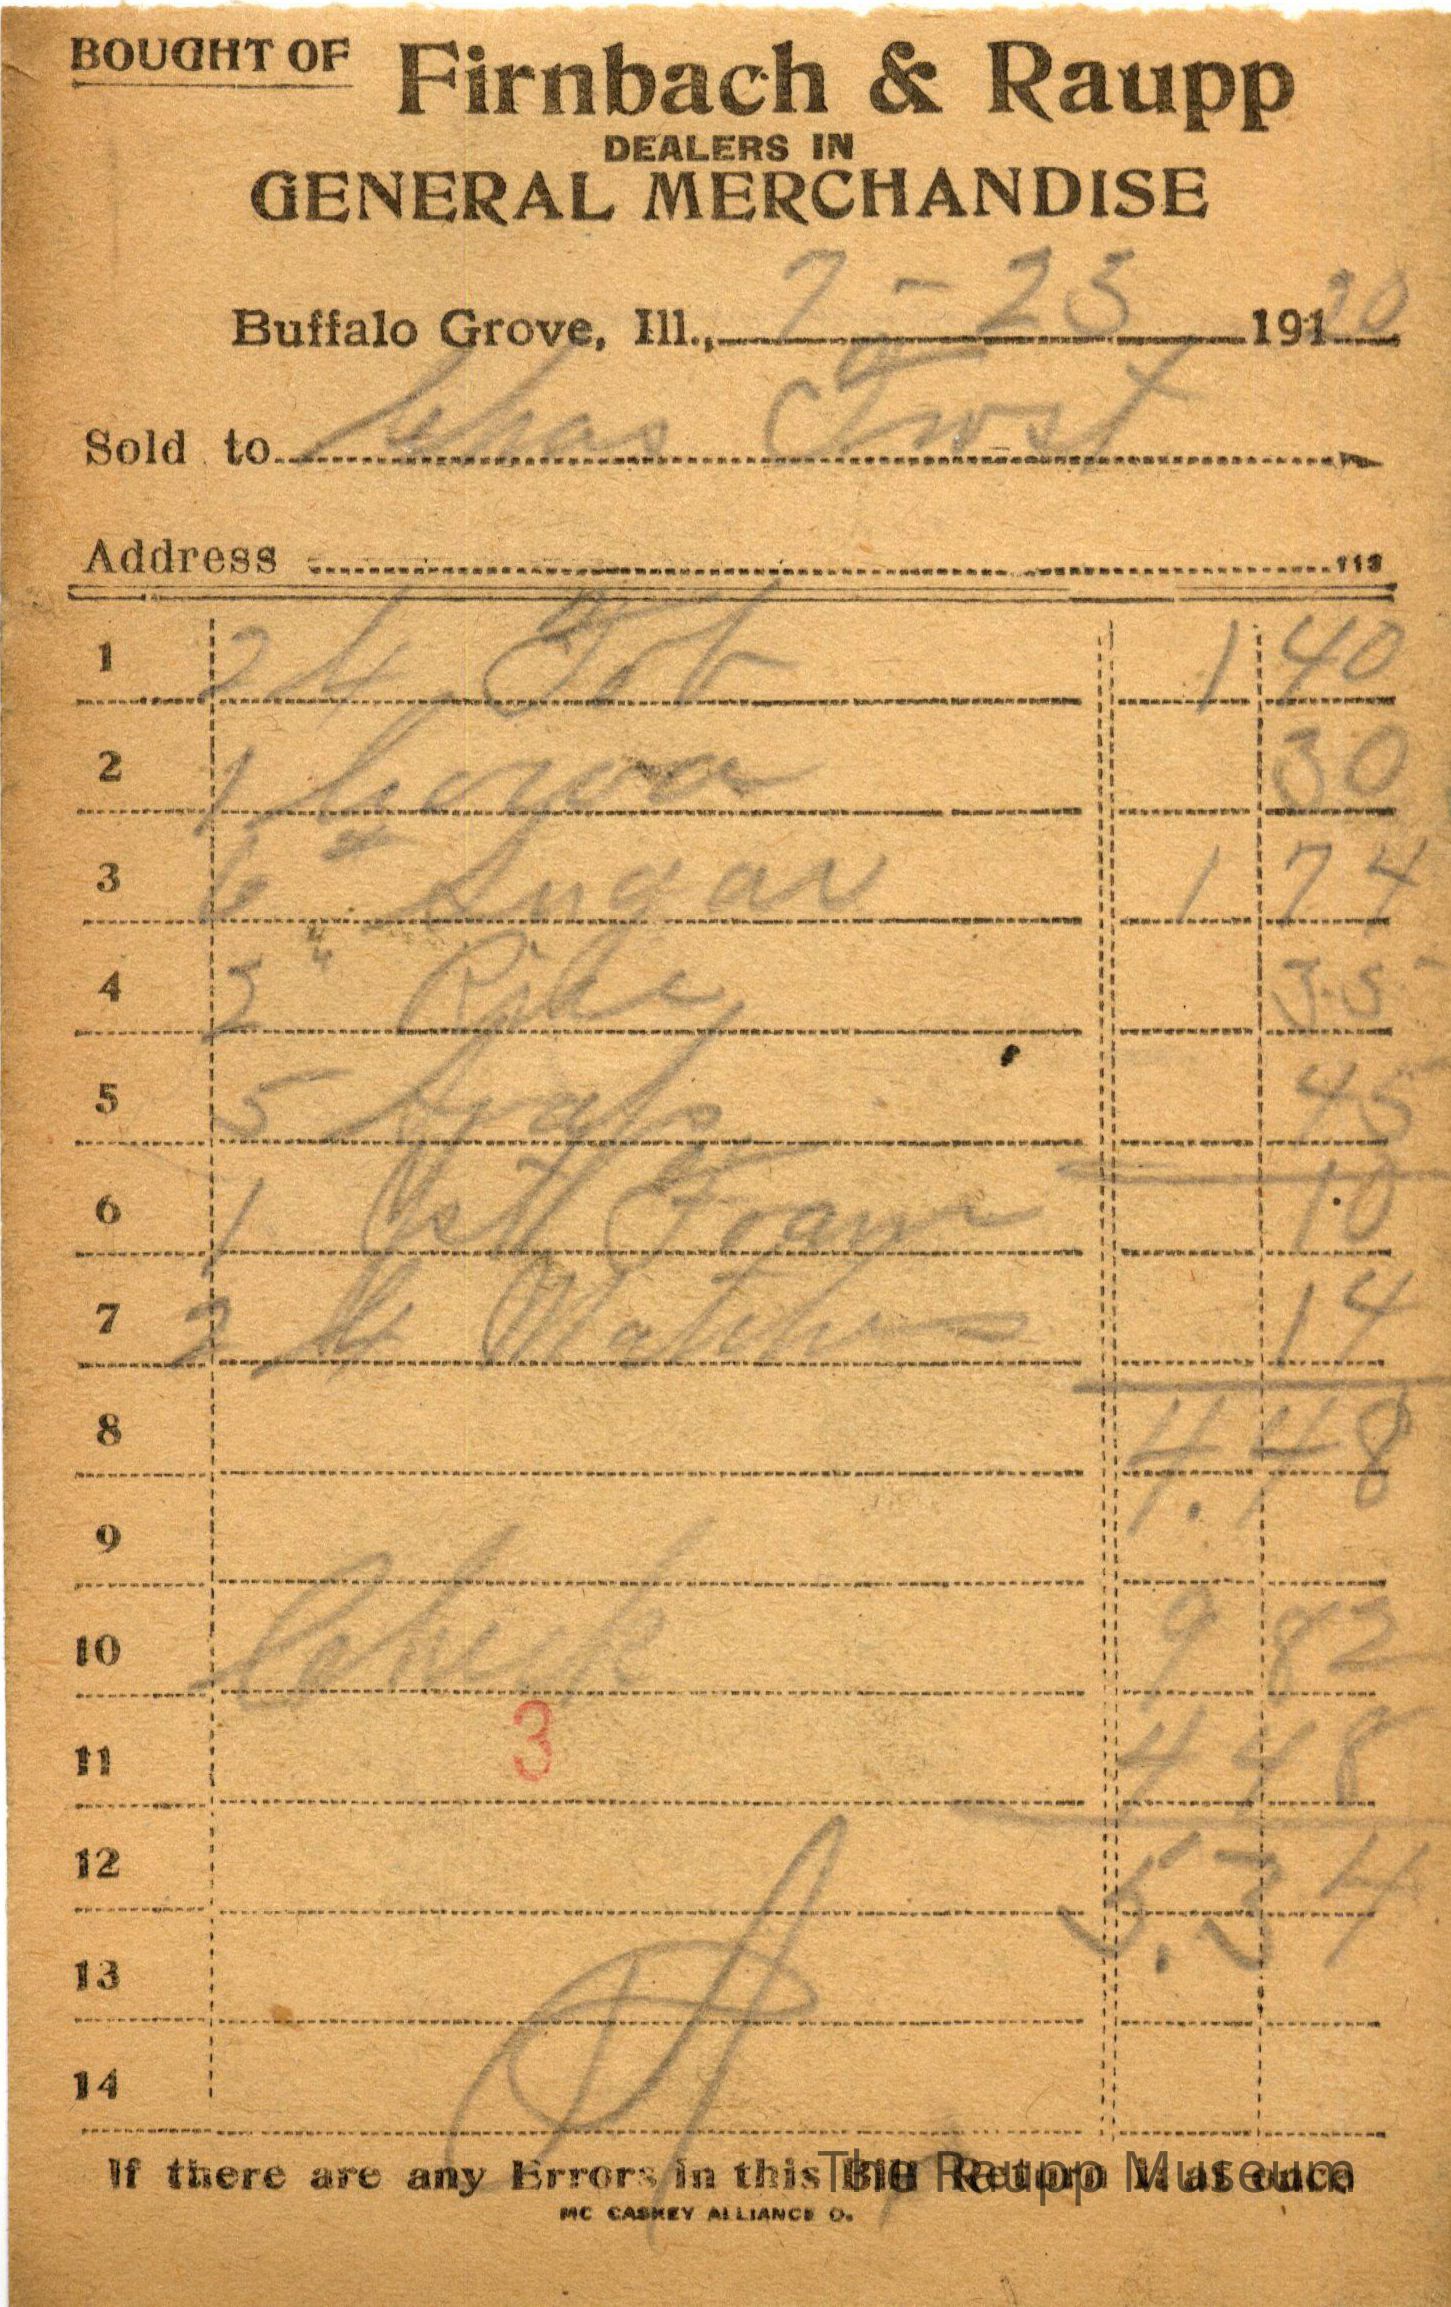 BOUGHT OF Firnbach & Raupp
DEALERS IN
GENERAL MERCHANDISE
Buffalo Grove, Ill., 7-23 191 20
Sold to Chas Frost
Address 113
1 2 lb Tob 1 40
2 1 lb 30
3 6 # Sugar 1 74
4 3 " 35
5 5 Soap 45
6 1 Yst Foam 10
7 2 Matches 14
8 4.48
9
10 Check 9 82
11 4 48
3
12 5.34
13
14
If there are any Errors in this Bill Return it at once
The Raupp Museum
MC CASKEY ALLIANCE O.